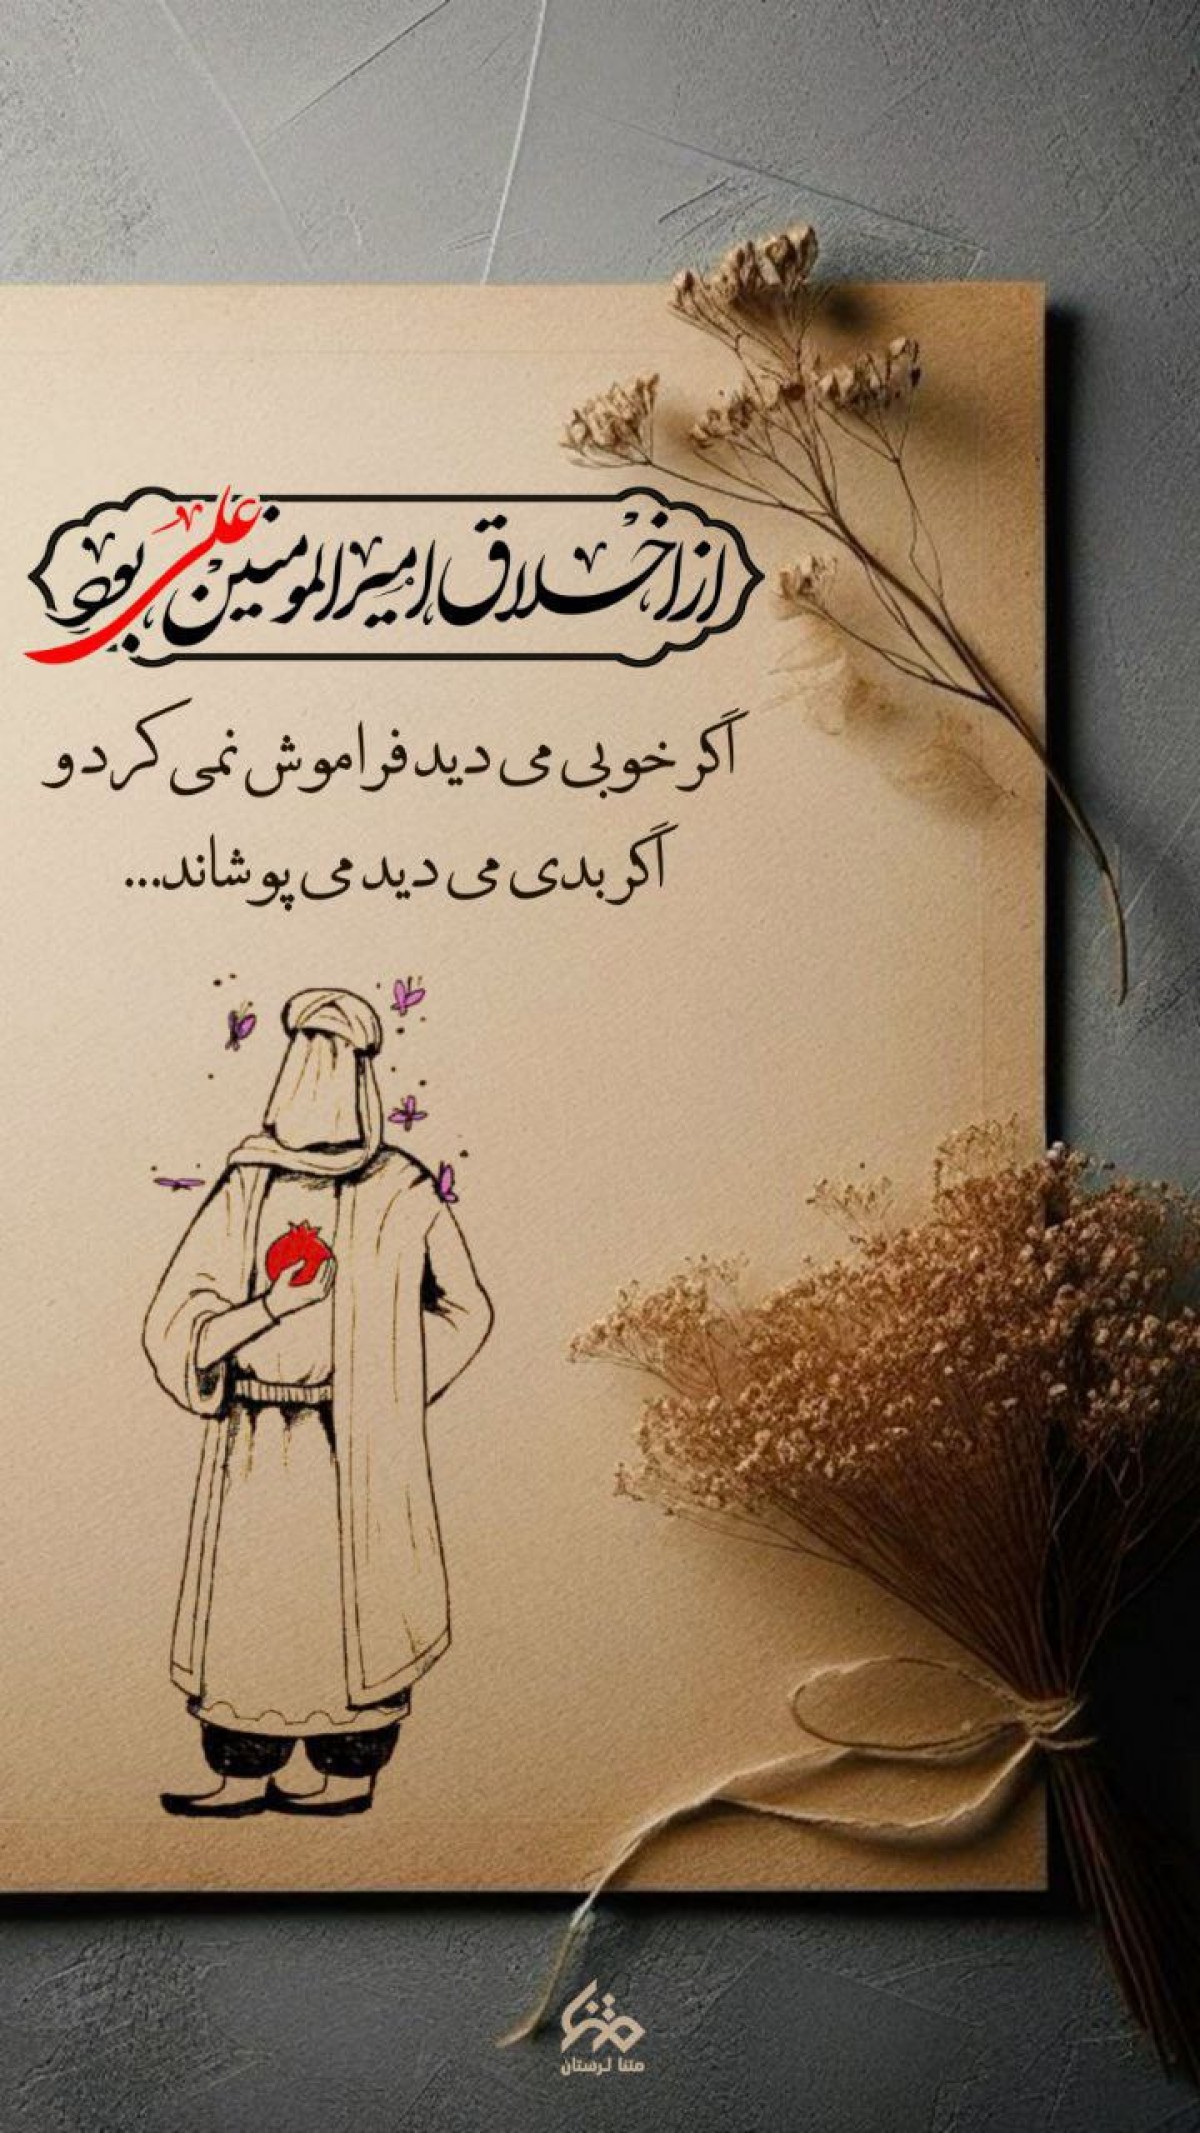 از اخلاق امیرالمومنین علی بود
اگر خوبی می دید فراموش نمی کرد و
اگر بدی می دید می پوشاند...
متنا
متنا لرستان